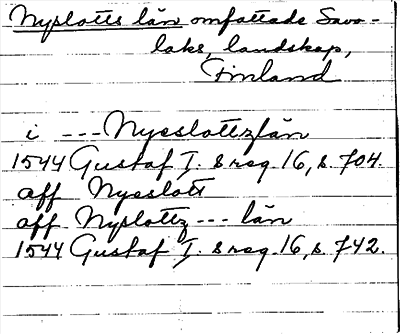 Nyslotts län omfattade Savo-
laks, landskap,
Finland
i --- Nyeslottzlän
1544 Gustaf I. s reg. 16, s. 704.
aff Nyeslott
aff Nyslottz --- län
1544 Gustaf I. s reg. 16, s. 742.